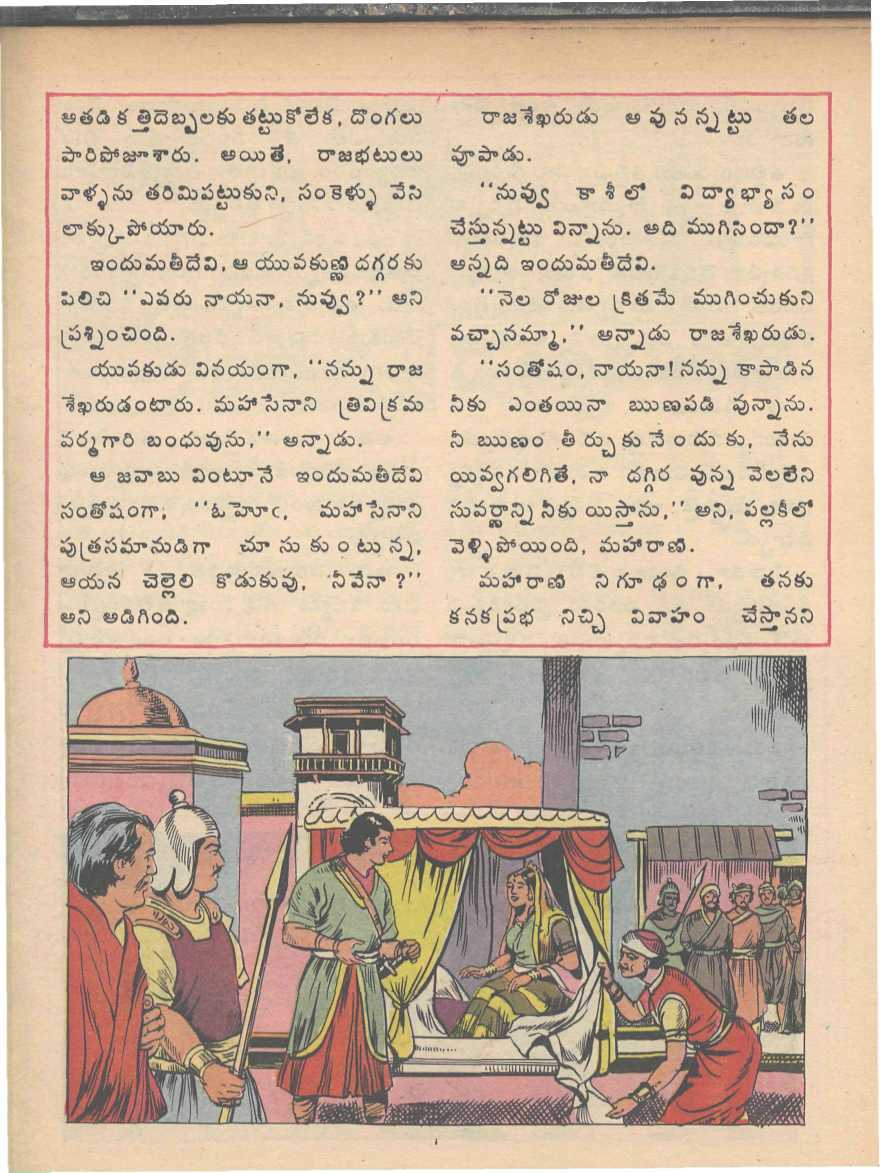 అతడి కత్తిదెబ్బలకు తట్టుకోలేక, దొంగలు
పారిపోజూశారు. అయితే, రాజభటులు
వాళ్ళను తరిమిపట్టుకుని, సంకెళ్ళు వేసి
లాక్కుపోయారు.
ఇందుమతీదేవి, ఆ యువకుణ్ణి దగ్గరకు
పిలిచి ‘‘ఎవరు నాయనా, నువ్వు?’’ అని
ప్రశ్నించింది.
యువకుడు వినయంగా, ‘‘నన్ను రాజ
శేఖరుడంటారు. మహాసేనాని త్రివిక్రమ
వర్మగారి బంధువును,’’ అన్నాడు.
ఆ జవాబు వింటూనే ఇందుమతీదేవి
సంతోషంగా, ‘‘ఓహెూఁ, మహాసేనాని
పుత్రసమానుడిగా చూసుకుంటున్న,
ఆయన చెల్లెలి కొడుకువు, నీవేనా?’’
అని అడిగింది.
రాజశేఖరుడు అవునన్నట్టు తల
వూపాడు.
‘‘నువ్వు కాశీలో విద్యాభ్యాసం
చేస్తున్నట్టు విన్నాను. అది ముగిసిందా?’’
అన్నది ఇందుమతీదేవి.
‘‘నెల రోజుల క్రితమే ముగించుకుని
వచ్చానమ్మా,’’ అన్నాడు రాజశేఖరుడు.
‘‘సంతోషం, నాయనా! నన్ను కాపాడిన
నీకు ఎంతయినా ఋణపడి వున్నాను.
నీ ఋణం తీర్చుకునేందుకు, నేను
యివ్వగలిగితే, నా దగ్గిర వున్న వెలలేని
సువర్ణాన్ని నీకు యిస్తాను,’’ అని, పల్లకీలో
వెళ్ళిపోయింది, మహారాణి.
మహారాణి నిగూఢంగా, తనకు
కనకప్రభ నిచ్చి వివాహం చేస్తానని